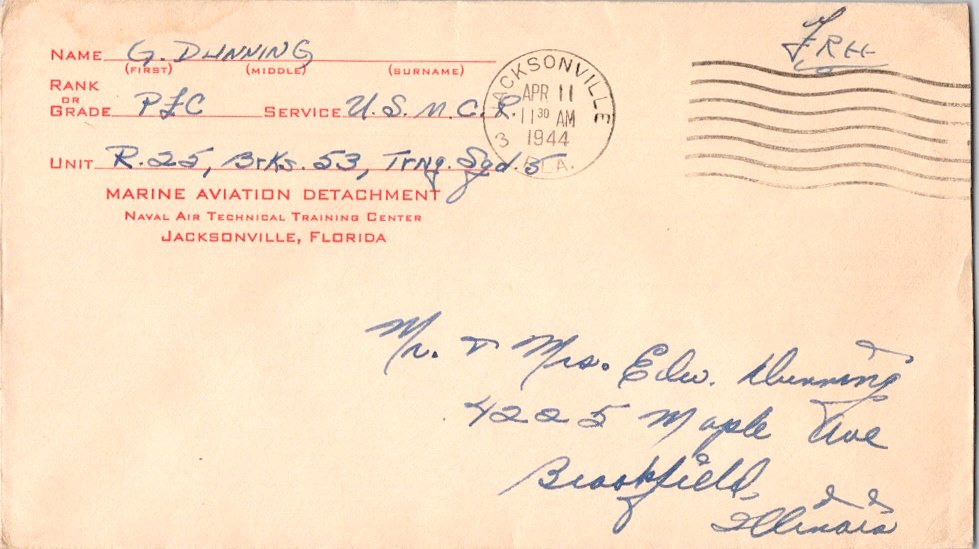 NAME G. DUNNING
(FIRST) (MIDDLE) (SURNAME)
RANK
OR
GRADE PFC SERVICE U.S.M.C.R.
UNIT R.25, Brks. 53, Trng. Sqd. 5
MARINE AVIATION DETACHMENT
NAVAL AIR TECHNICAL TRAINING CENTER
JACKSONVILLE, FLORIDA
JACKSONVILLE
APR 11
11 30 AM
1944
3
FLA.
FREE
Mr. & Mrs. Edw. Dunning
4225 Maple Ave
Brookfield,
Illinois